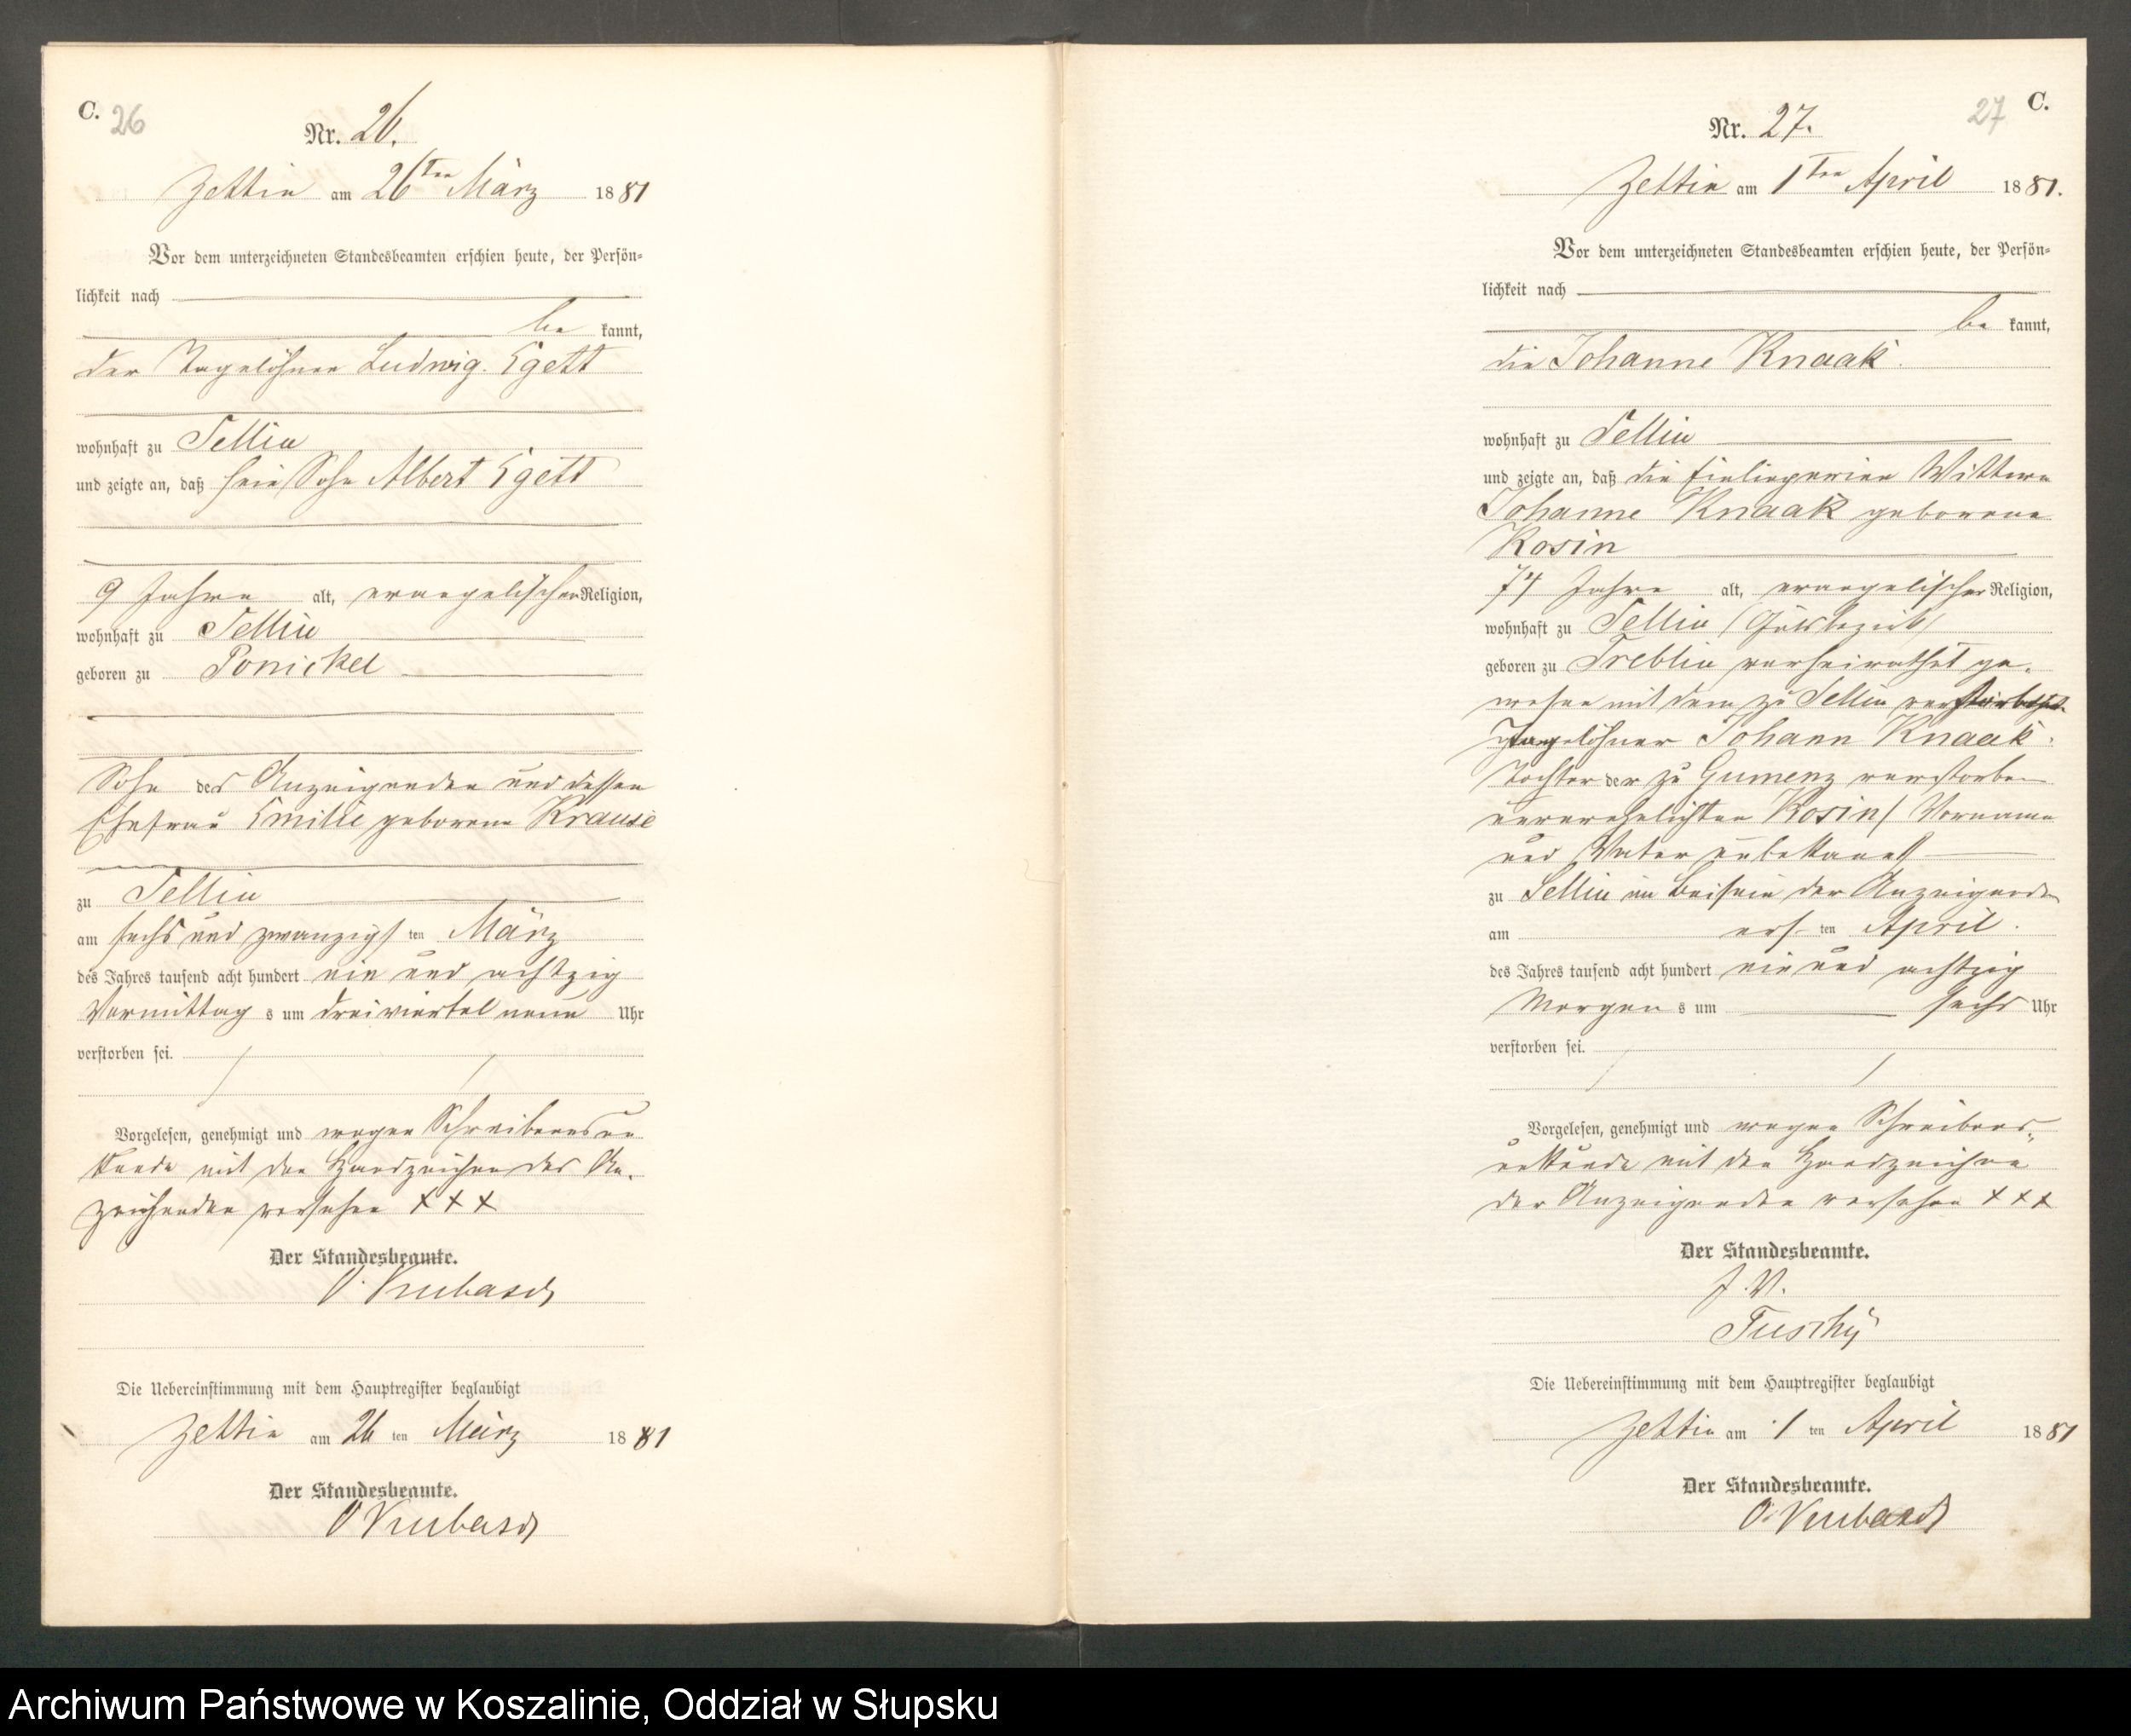 C. 26
Nr. 26.
Zettin am 26ten März 1881
Vor dem unterzeichneten Standesbeamten erschien heute, der Persön=
lichkeit nach
be kannt,
der Tagelöhner Ludwig Egett
wohnhaft zu Sellin
und zeigte an, daß sein Sohn Albert Egett
9 Jahre alt, evangelischer Religion,
wohnhaft zu Sellin
geboren zu Ponickel
Sohn des Anzeigenden und dessen
Ehefrau Emilie geborene Krause
zu Sellin
am sechs und zwanzigs ten März
des Jahres tausend acht hundert ein und achtzig
Vormittag s um dreiviertel neun Uhr
verstorben sei.
Vorgelesen, genehmigt und wegen Schreibensun
kunde mit den Handzeichen des An.
zeichenden versehen +++
Der Standesbeamte.
O. Kubasch
Die Uebereinstimmung mit dem Hauptregister beglaubigt
Zettin am 26 ten März 1881
Der Standesbeamte.
O Kubasch
27 C.
Nr. 27.
Zettin am 1ten April 1881.
Vor dem unterzeichneten Standesbeamten erschien heute, der Persön=
lichkeit nach
be kannt,
die Johanne Knaak.
wohnhaft zu Sellin
und zeigte an, daß die Einliegerin Wittwe
Johanne Knaak geborene
Kosin
74 Jahre alt, evangelischer Religion,
wohnhaft zu Sellin (Gutsbezirk)
geboren zu Treblin verheirathet ge.
wesen mit dem zu Sellin verstorbenen
Tagelöhner Johann Knaak.
Tochter der zu Gumenz verstorben
unverehelichten Kosin/ Vorname
und Vater unbekannt
zu Sellin im Beisein der Anzeigende
am ers ten April.
des Jahres tausend acht hundert ein und achtzig
Morgen s um sechs Uhr
verstorben sei.
Vorgelesen, genehmigt und wegen Schreibens„
unkunde mit den Handzeichen
der Anzeigenden versehen +++
Der Standesbeamte.
J. V.
Tuschy
Die Uebereinstimmung mit dem Hauptregister beglaubigt
Zettin am 1 ten April 1881
Der Standesbeamte.
O. Kubasch
Archiwum Państwowe w Koszalinie, Oddział w Słupsku